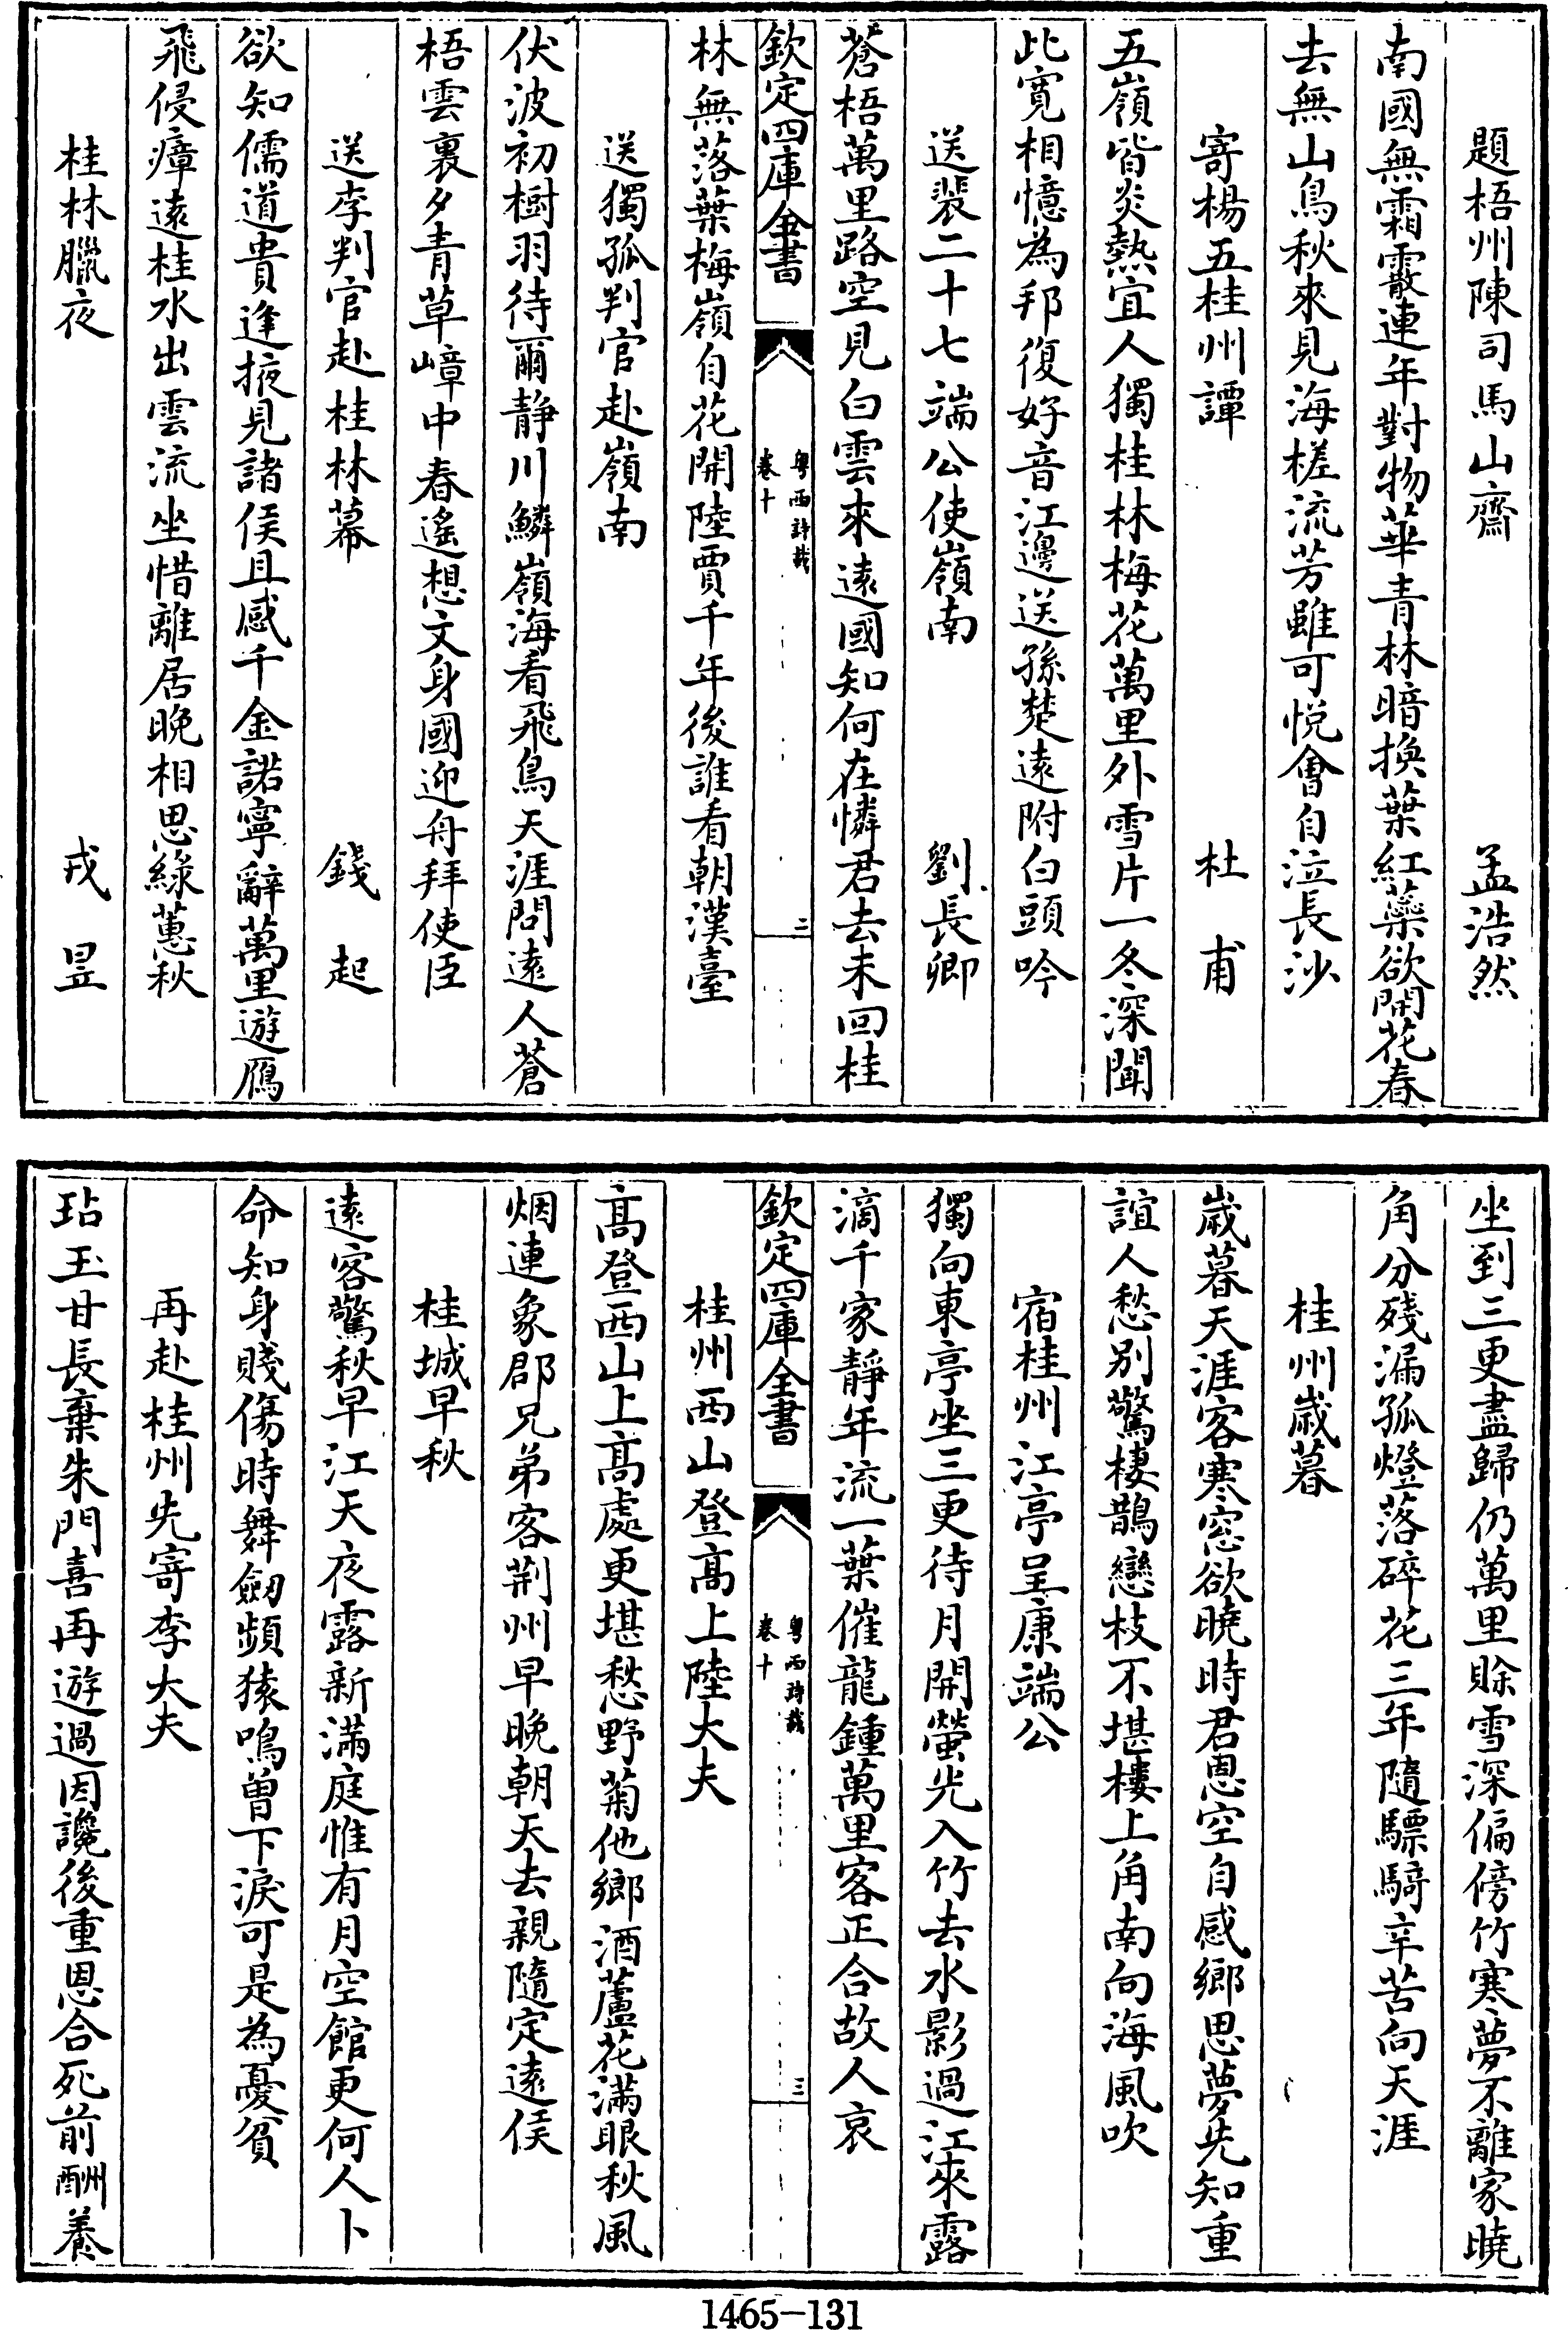 題梧州陳司馬山齋　孟浩然
南國無霜霰連年對物華青林暗換葉紅蘂欲開花春
去無山鳥秋來見海槎流芳雖可悦會自泣長沙
寄楊五桂州譚　杜甫
五嶺皆炎熱宜人獨桂林梅花萬里外雪片一冬深聞
此寛相憶為邦復好音江邊送孫楚遠附白頭吟
送裴二十七端公使嶺南　劉長卿
蒼梧萬里路空見白雲來遠國知何在憐君去未回桂
欽定四庫全書　粤西詩載　卷十　二
林無落葉梅嶺自花開陸賈千年後誰看朝漢臺
送獨孤判官赴嶺南
伏波初樹羽待爾静川鱗嶺海看飛鳥天涯問遠人蒼
梧雲裏夕青草嶂中春遙想文身國迎舟拜使臣
送李判官赴桂林幕　錢起
欲知儒道貴逢掖見諸侯且感千金諾寧辭萬里遊鴈
飛侵瘴遠桂水出雲流坐惜離居晚相思綠蕙秋
桂林臘夜　戎昱
坐到三更盡歸仍萬里賖雪深偏傍竹寒夢不離家曉
角分殘漏孤燈落碎花三年隨驃騎辛苦向天涯
桂州歳暮
歳暮天涯客寒窓欲曉時君恩空自感鄉思夢先知重
誼人愁别驚棲鵲戀枝不堪樓上角南向海風吹
宿桂州江亭呈康端公
獨向東亭坐三更待月開螢光入竹去水影過江來露
滴千家靜年流一葉催龍鍾萬里客正合故人哀
欽定四庫全書　粤西詩載　卷十　三
桂州西山登高上陸大夫
高登西山上高處更堪愁野菊他鄉酒蘆花滿眼秋風
烟連象郡兄弟客荆州早晚朝天去親隨定遠侯
桂城早秋
遠客驚秋早江天夜露新滿庭惟有月空館更何人卜
命知身賤傷時舞劒頻猿鳴曽下淚可是為憂貧
再赴桂州先寄李大夫
玷玉甘長棄朱門喜再遊過因讒後重恩合死前酬養
1465-131